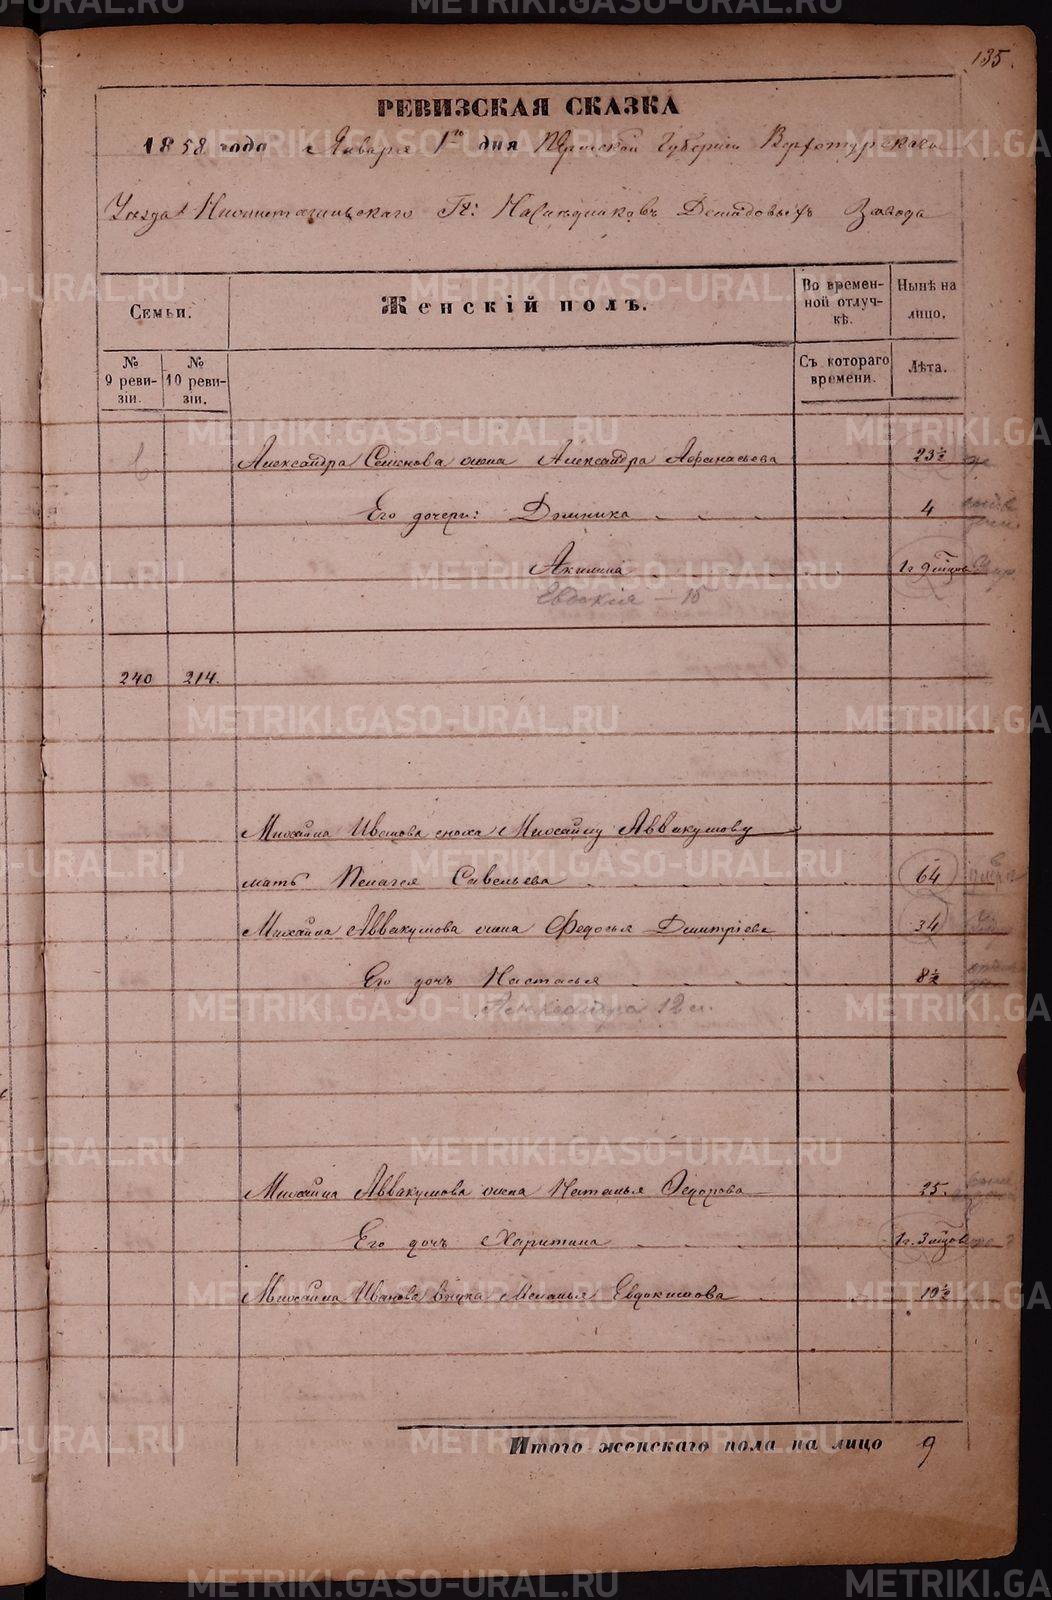 135.
РЕВИЗСКАЯ СКАЗКА
1858 года Января 1го дня Пермской Губернiи Верхотурскаго
Уѣзда Нижнетагильскаго Гг: Наслѣдниковъ Демидовыхъ Завода
Семьи.
Женскiй полъ.
Во времен-
ной отлуч-
кѣ.
Нынѣ на
лицо.
№
9 реви-
зiи.
№
10 реви-
зiи.
Съ котораго
времени.
Лѣта.
Александра Семенова жена Александра Афанасьева 23½
Его дочери: Домника 4
Акилина 1г 9 мѣсцов
Евдокiя – 15
240 214.
Михайла Иванова сноха Михайлу Аввакумову
мать Пелагея Савельева 64
Михайла Аввакумова жена Федосья Дмитрiева 34
Его дочь Настасья 8½
Александра 12 л.
Михайла Аввакумова жена Наталья Федорова 25.
Его дочь Харитина 1г. 3 мѣсцов
Михайла Иванова внука Меланья Евдокимова 19½
Итого женскаго пола на лицо 9
METRIKI.GASO-URAL.RU